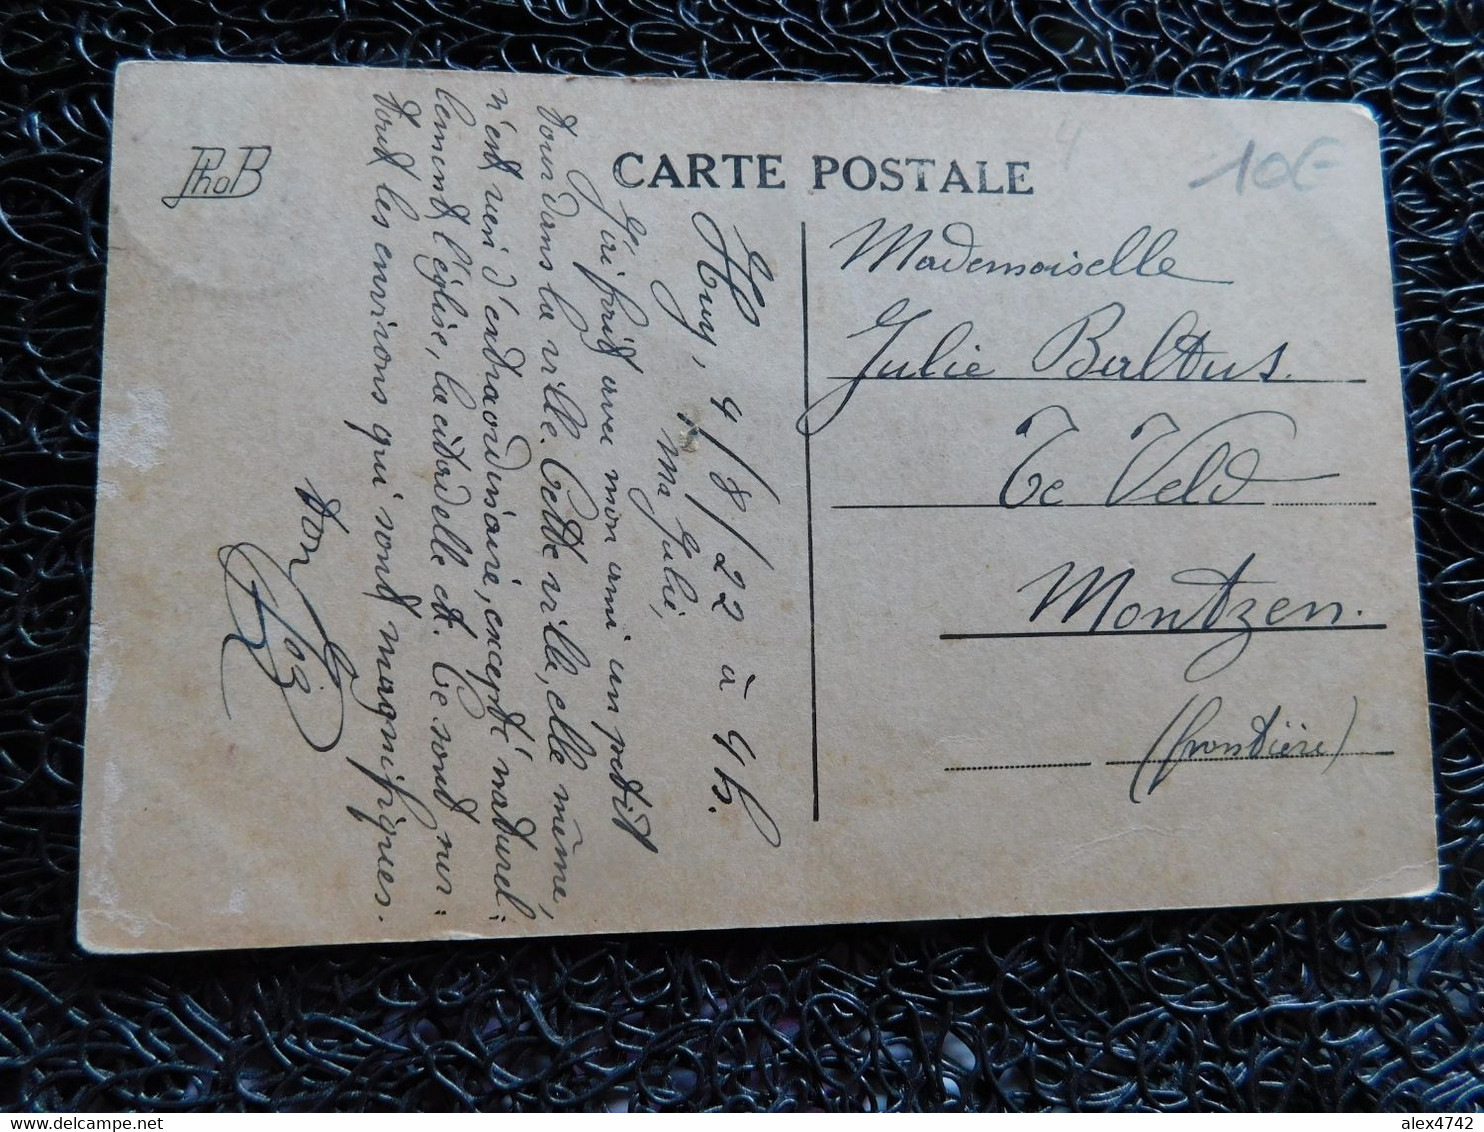 PhoB
CARTE POSTALE
10€
4
Huy, 4/8/22 à 4h.
Ma Julie,
J'ai fait avec mon ami un petit
tour dans la ville. Cette ville, elle même,
n'est rien d'extraordinaire, excepté naturel:
lement l'église, la citadelle et. Ce sont sur:
tout les environs qui sont magnifiques.
ton
Mademoiselle
Julie Baltus.
Te Veld
Montzen.
(frontière)
alex4742